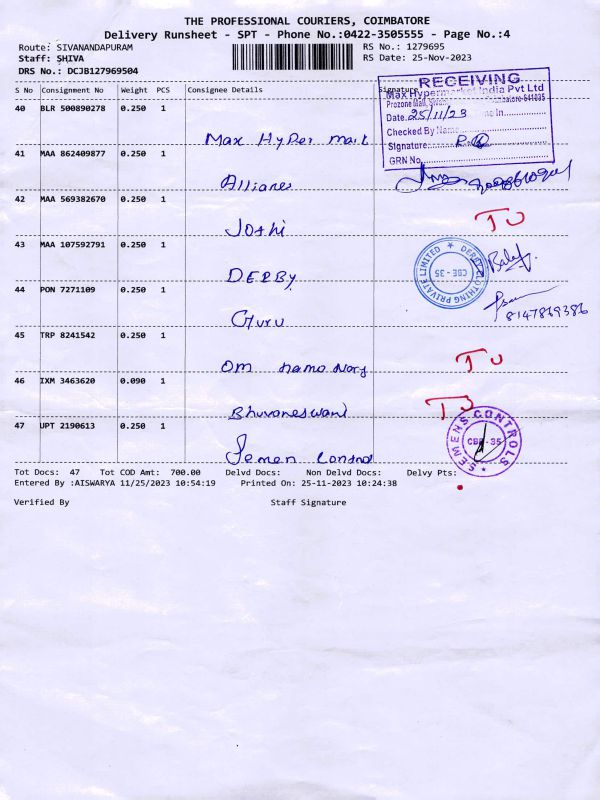 THE PROFESSIONAL COURIERS, COIMBATORE
Delivery Runsheet - SPT - Phone No.:0422-3505555 - Page No.:4
Route: SIVANANDAPURAM
RS No.: 1279695
Staff: SHIVA
RS Date: 25-Nov-2023
DRS No.: DCJB127969504
S No Consignment No Weight PCS Consignee Details Signature
RECEIVING
Max Hypermarket India Pvt Ltd
Prozone Mall, Coimbatore-641035
Date. 25/11/23 in
Checked By Name
Signature
GRN No.
40 BLR 500890278 0.250 1
Max Hyper mark
41 MAA 862409877 0.250 1
Alliance
42 MAA 569382670 0.250 1
Joshi
TU
43 MAA 107592791 0.250 1
DERBY
DERBY CLOTHING PRIVATE LIMITED
CBE - 35
44 PON 7271109 0.250 1
Guru
8147869386
45 TRP 8241542 0.250 1
Om namo
TU
46 IXM 3463620 0.090 1
Bhuvaneswari
47 UPT 2190613 0.250 1
SEMENS CONTROLS
CBE - 35
Tot Docs: 47 Tot COD Amt: 700.00 Delvd Docs: Non Delvd Docs: Delvy Pts:
Entered By :AISWARYA 11/25/2023 10:54:19 Printed On: 25-11-2023 10:24:38
Verified By Staff Signature